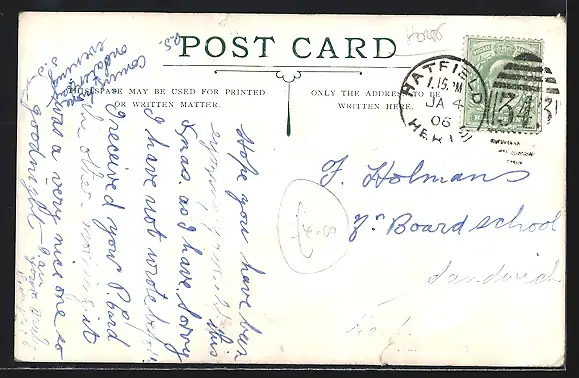 POST CARD
THIS SPACE MAY BE USED FOR PRINTED
OR WRITTEN MATTER.
ONLY THE ADDRESS TO BE
WRITTEN HERE.
HATFIELD
1.15.PM
JA 4
06
HERTS
343
Hope you have been
enjoying yourself this
Xmas. as I have. Sorry
I have not wrote before
I received your P. Card
the other morning it
was a very nice one so
goodnight I am
F. Holmans
Board school
Sandwich